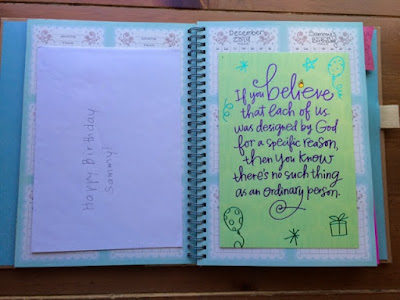 Happy Birthday
Sammy!
December
2014
Sammy's
Birthday
If you believe
that each of us
was designed by God
for a specific reason,
then you know
there's no such thing
as an ordinary person.